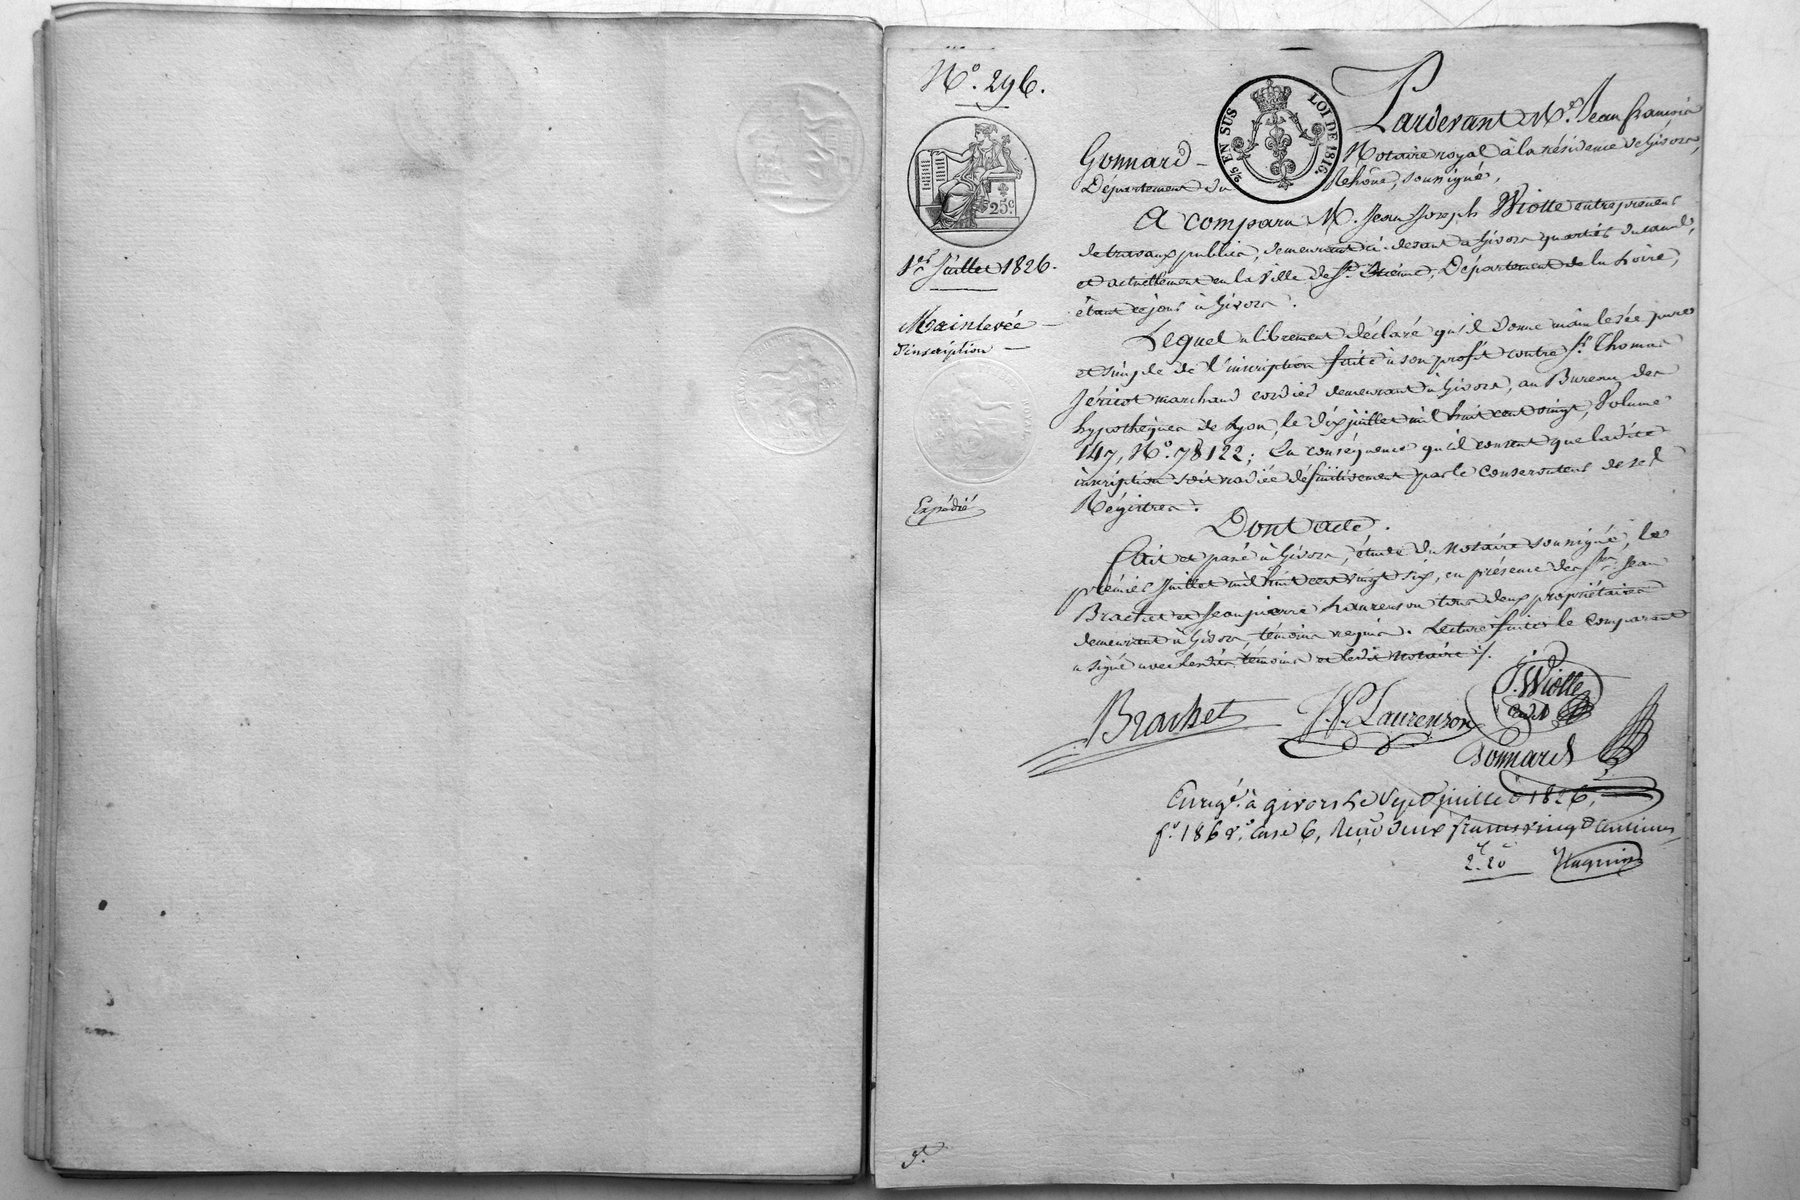 N.º 296.
25.c
1er Juillet 1826.
Mainlevée
d'inscription
Expédié
5/s EN SUS
LOI DE 1816.
Pardevant M.e Jean françois
Gonnard Notaire royal à la résidence de Givors,
Département du Rhône, soussigné,
A comparu M. Jean Joseph Wiotte entrepreneur
de travaux publics, demeurant ci-devant à Givors quartier du canal,
et actuellement en la Ville de St. Etienne, Département de la Loire,
étant ce jour à Givors.
Lequel a librement déclaré qu'il donne mainlevée pure
et simple de l'inscription faite à son profit contre Sr. Thomas
Jéricot marchand cordier demeurant à Givors, au Bureau des
hypothèques de Lyon, le dix juillet mil huit cent vingt, Volume
147, N.º 78122; En conséquence qu'il consent que ladite
inscription soit radiée définitivement par le conservateur de ses
Régistres.
Dont acte.
Fait et passé à Givors, étude du Notaire soussigné, le
prémier Juillet mil huit cent vingt six, en présence des Srs. Jean
Brachet et Jean pierre Laurenson tous deux propriétaires
demeurant à Givors, témoins requis. Lecture faite le comparant
a signé avec lesdits témoins et ledit Notaire ./.
J. Wiotte
Brachet J.P. Laurenson
Gonnard
Enregé. à givors le Sept juillet 1826,
fo. 186 Vo. Case 6, Reçu deux francs vingt Centimes
2f. 20c